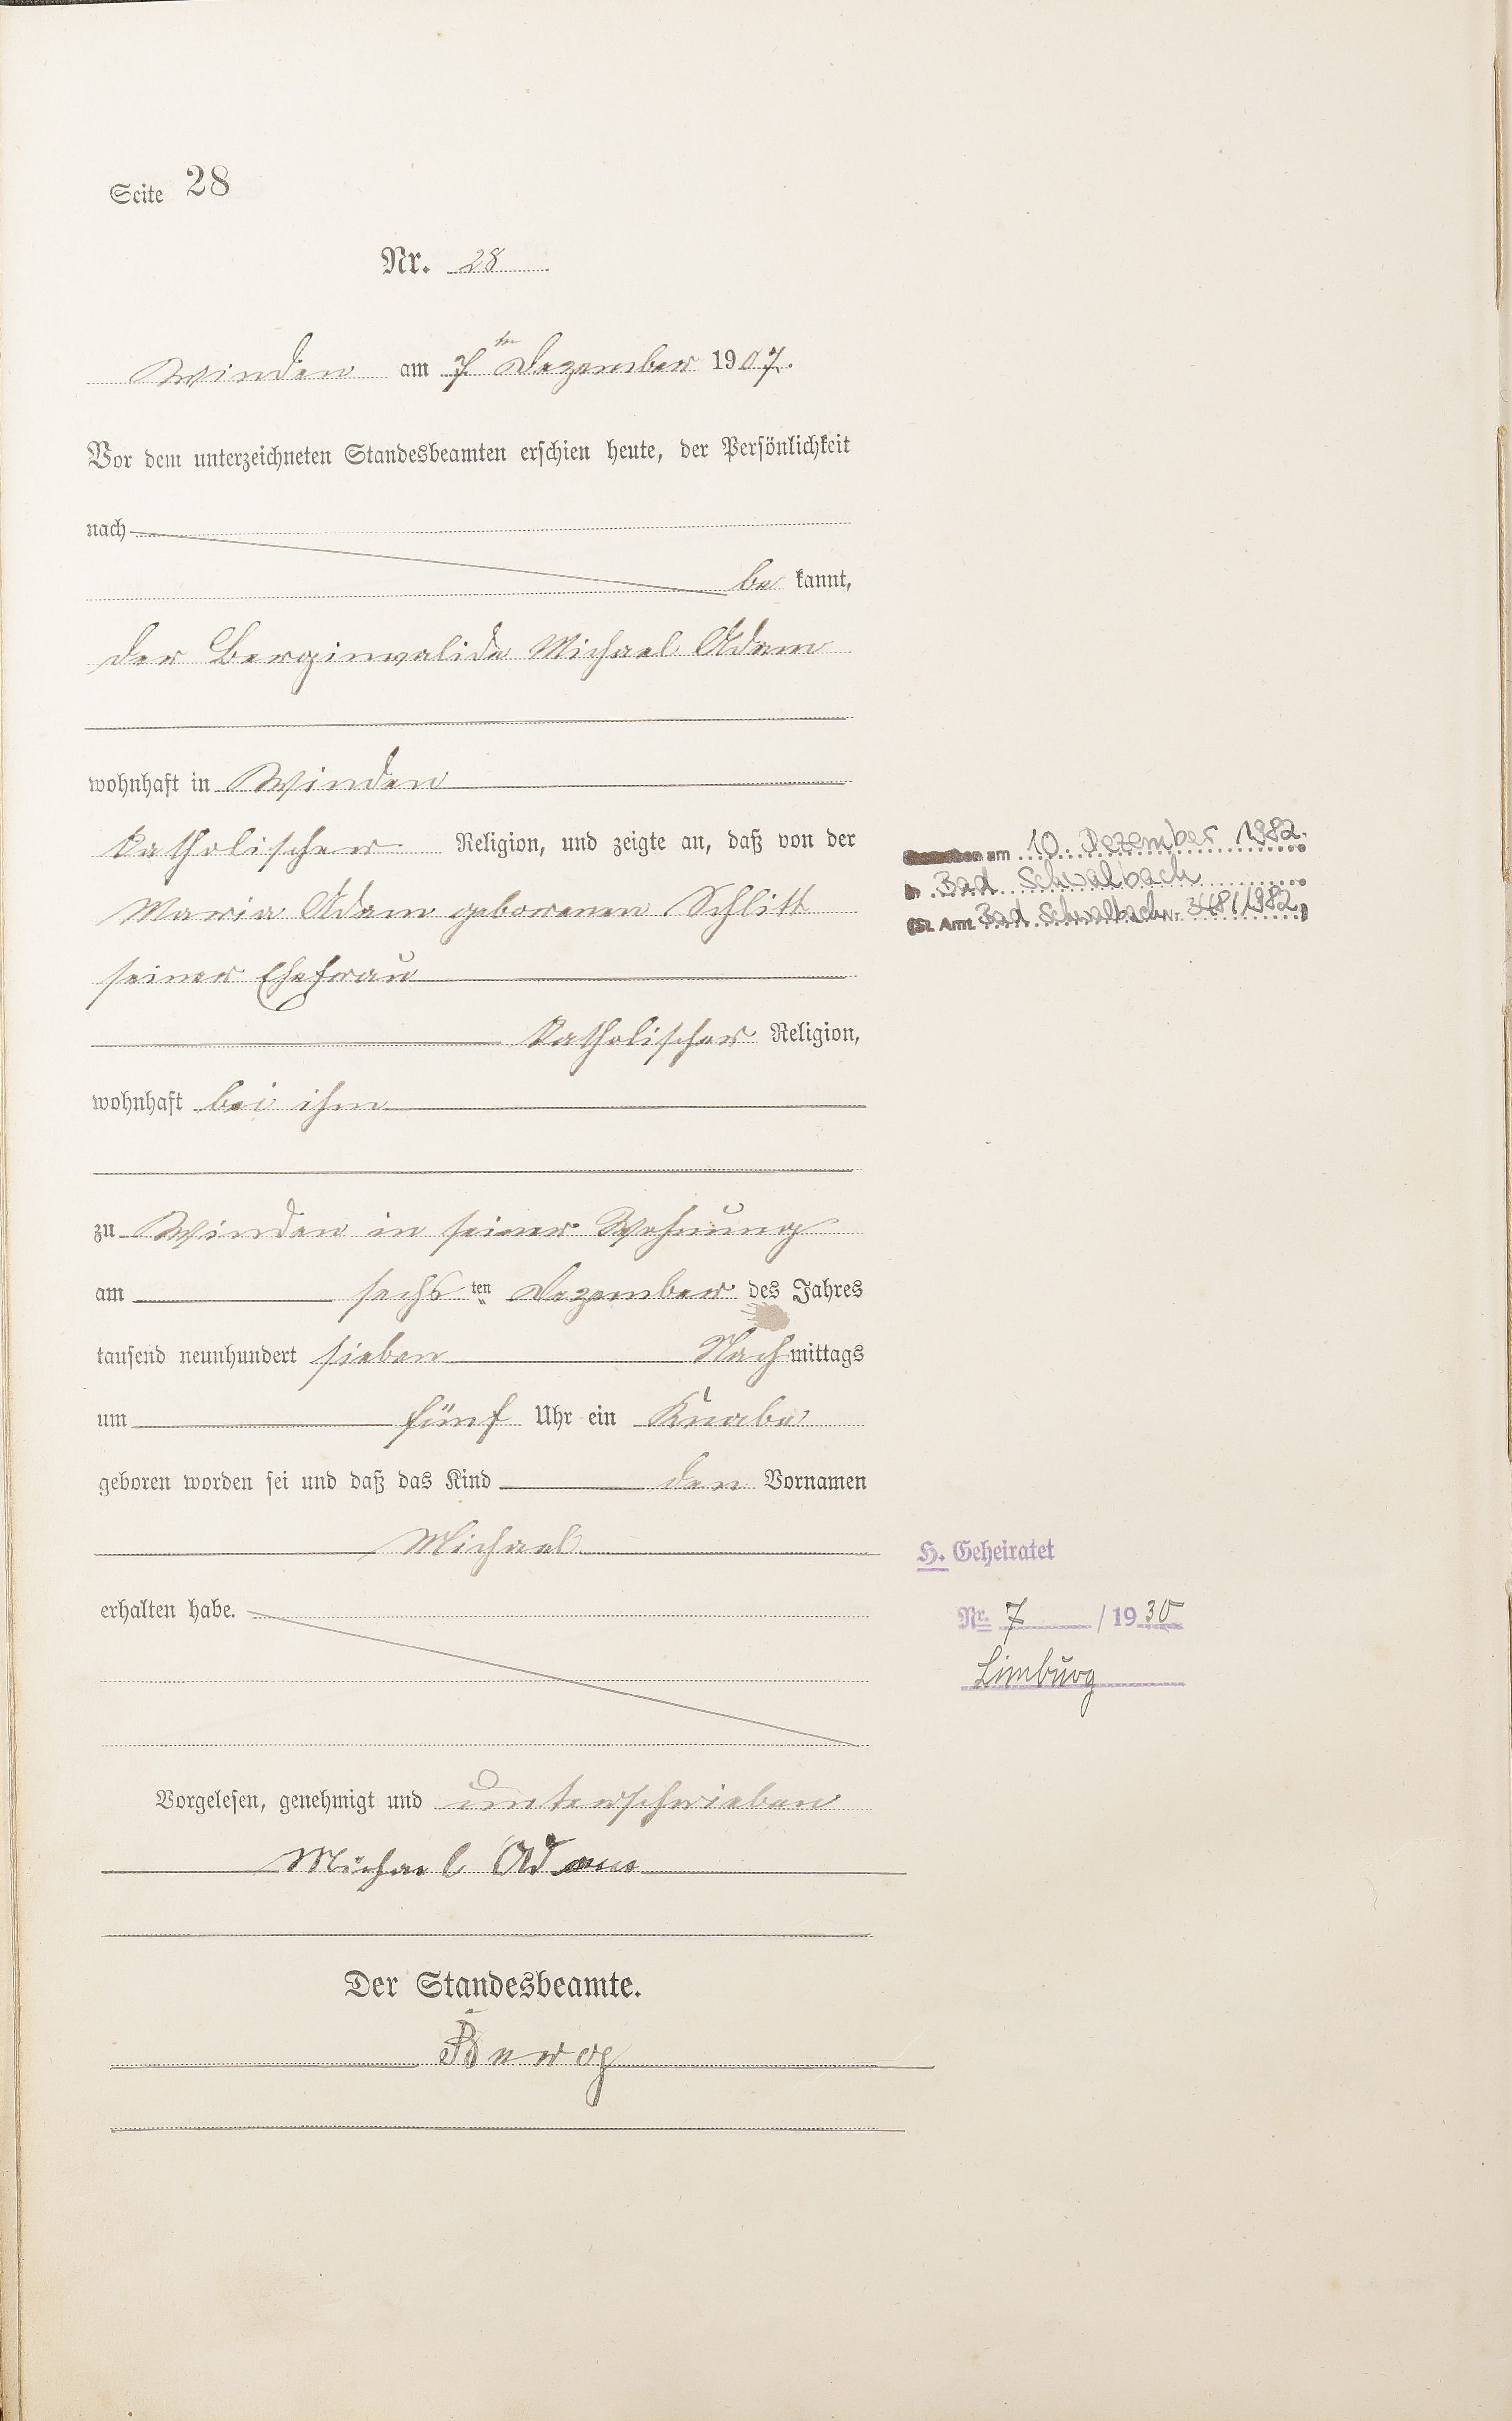 Seite 28
Nr. 28
Winden am 7ten Dezember 1907.
Vor dem unterzeichneten Standesbeamten erschien heute, der Persönlichkeit
nach
be kannt,
der Berginvalide Michael Adam
wohnhaft in Winden
katholischer Religion, und zeigte an, daß von der
Maria Adam geborenen Schlitt
seiner Ehefrau
katholischer Religion,
wohnhaft bei ihm
zu Winden in seiner Wohnung
am sechs ten Dezember des Jahres
tausend neunhundert sieben Nachmittags
um fünf Uhr ein Knabe
geboren worden sei und daß das Kind den Vornamen
Michael
erhalten habe.
Vorgelesen, genehmigt und unterschrieben
Michael Adam
Der Standesbeamte.
am 10. Dezember 1982.
in Bad Schwalbach
(St. Amt Bad Schwalbach Nr. 348/1982)
H. Geheiratet
Nr. 7 / 1930
Limburg